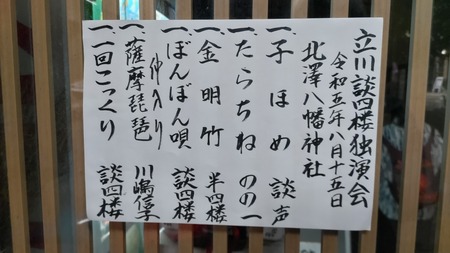 立川談四楼独演会
令和五年八月十五日
北澤八幡神社
一、子ほめ 談声
一、たらちね のの一
一、金明竹 半四楼
一、ぼんぼん唄 談四楼
仲入り
一、薩摩琵琶 川嶋信子
一、一回こっくり 談四楼